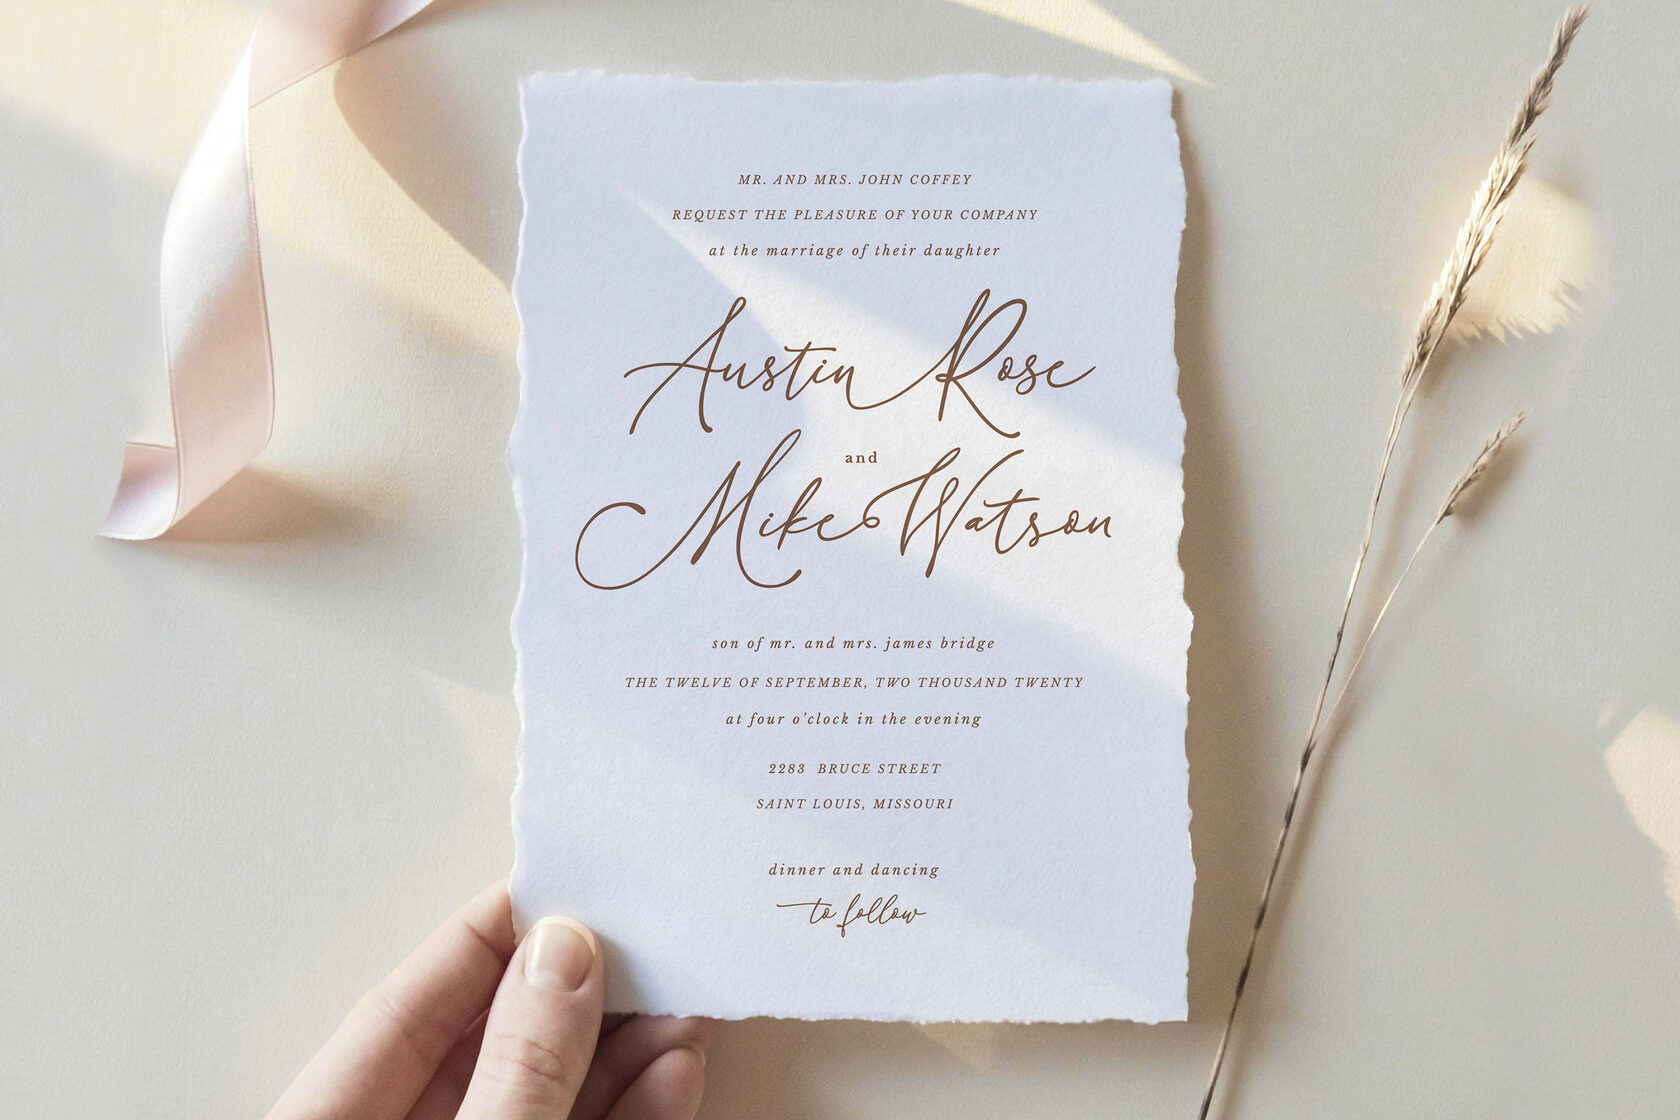 MR. AND MRS. JOHN COFFEY
REQUEST THE PLEASURE OF YOUR COMPANY
at the marriage of their daughter
Austin Rose
and
Mike Watson
son of mr. and mrs. james bridge
THE TWELVE OF SEPTEMBER, TWO THOUSAND TWENTY
at four o’clock in the evening
2283 BRUCE STREET
SAINT LOUIS, MISSOURI
dinner and dancing
to follow